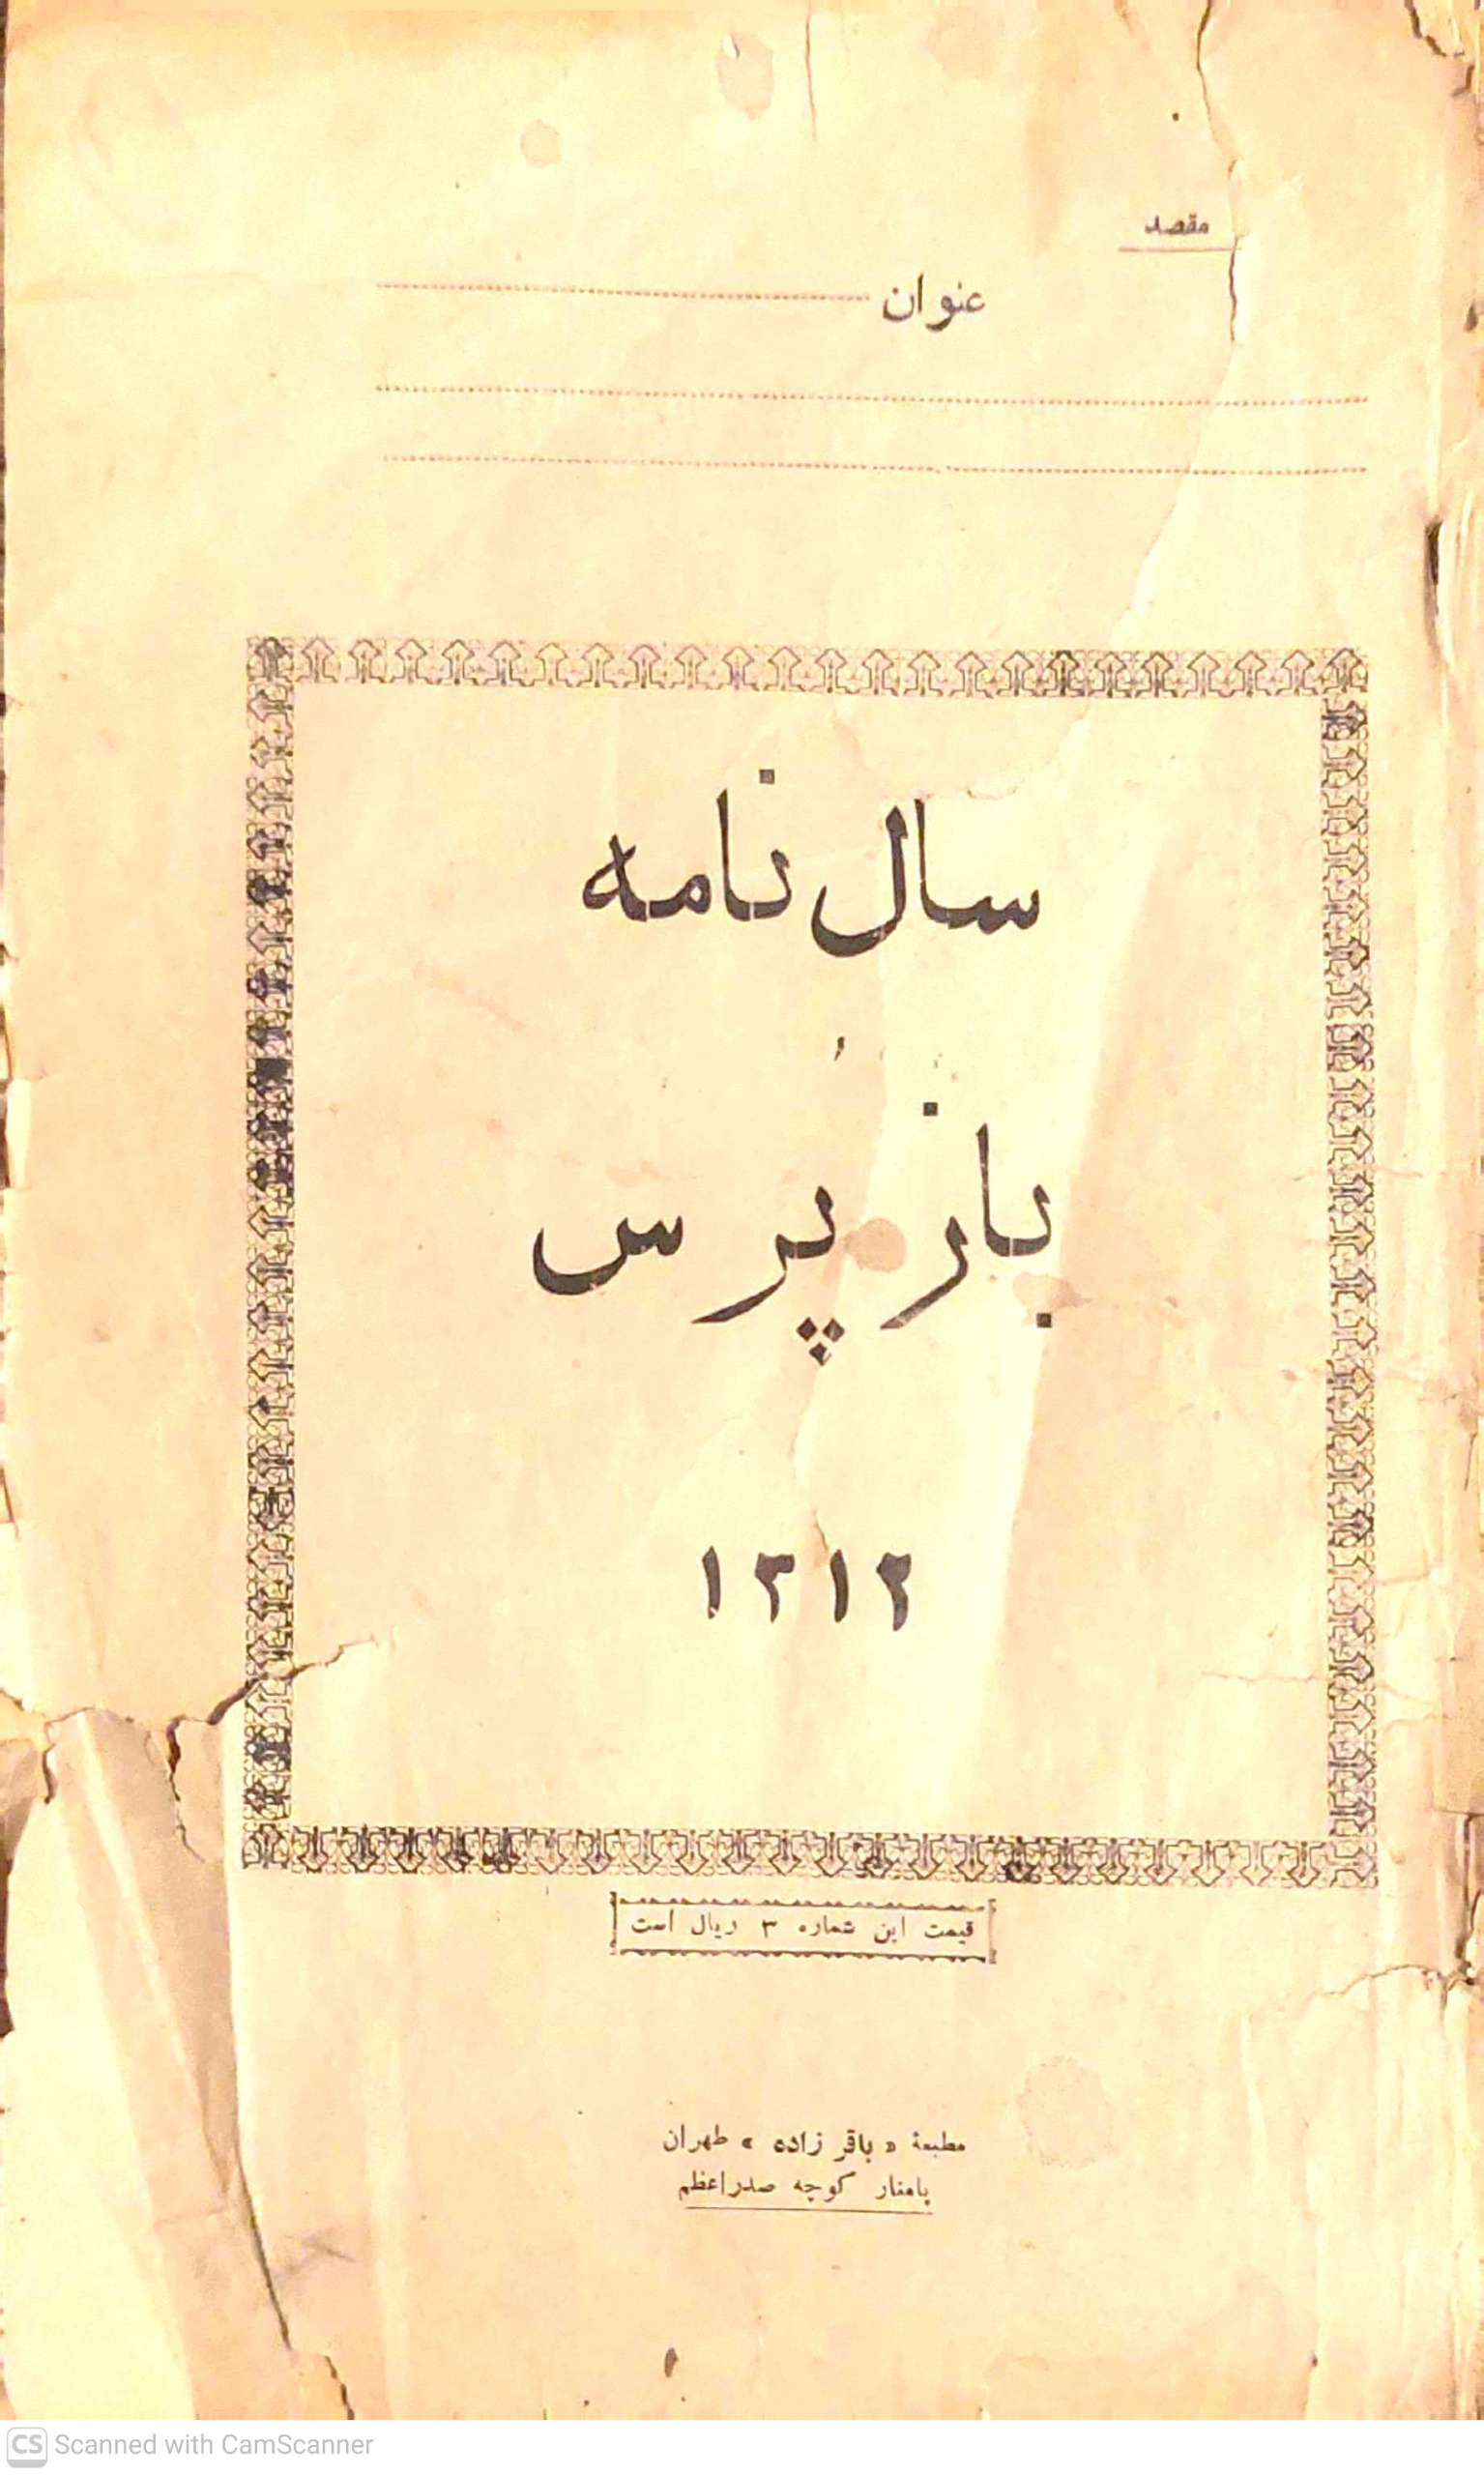 مقصد
عنوان
سال نامه
باز پرس
۱۳۱۲
قیمت این شماره ۳ ریال است
مطبعهٔ « باقر زاده » طهران
پامنار کوچه صدراعظم
CS Scanned with CamScanner